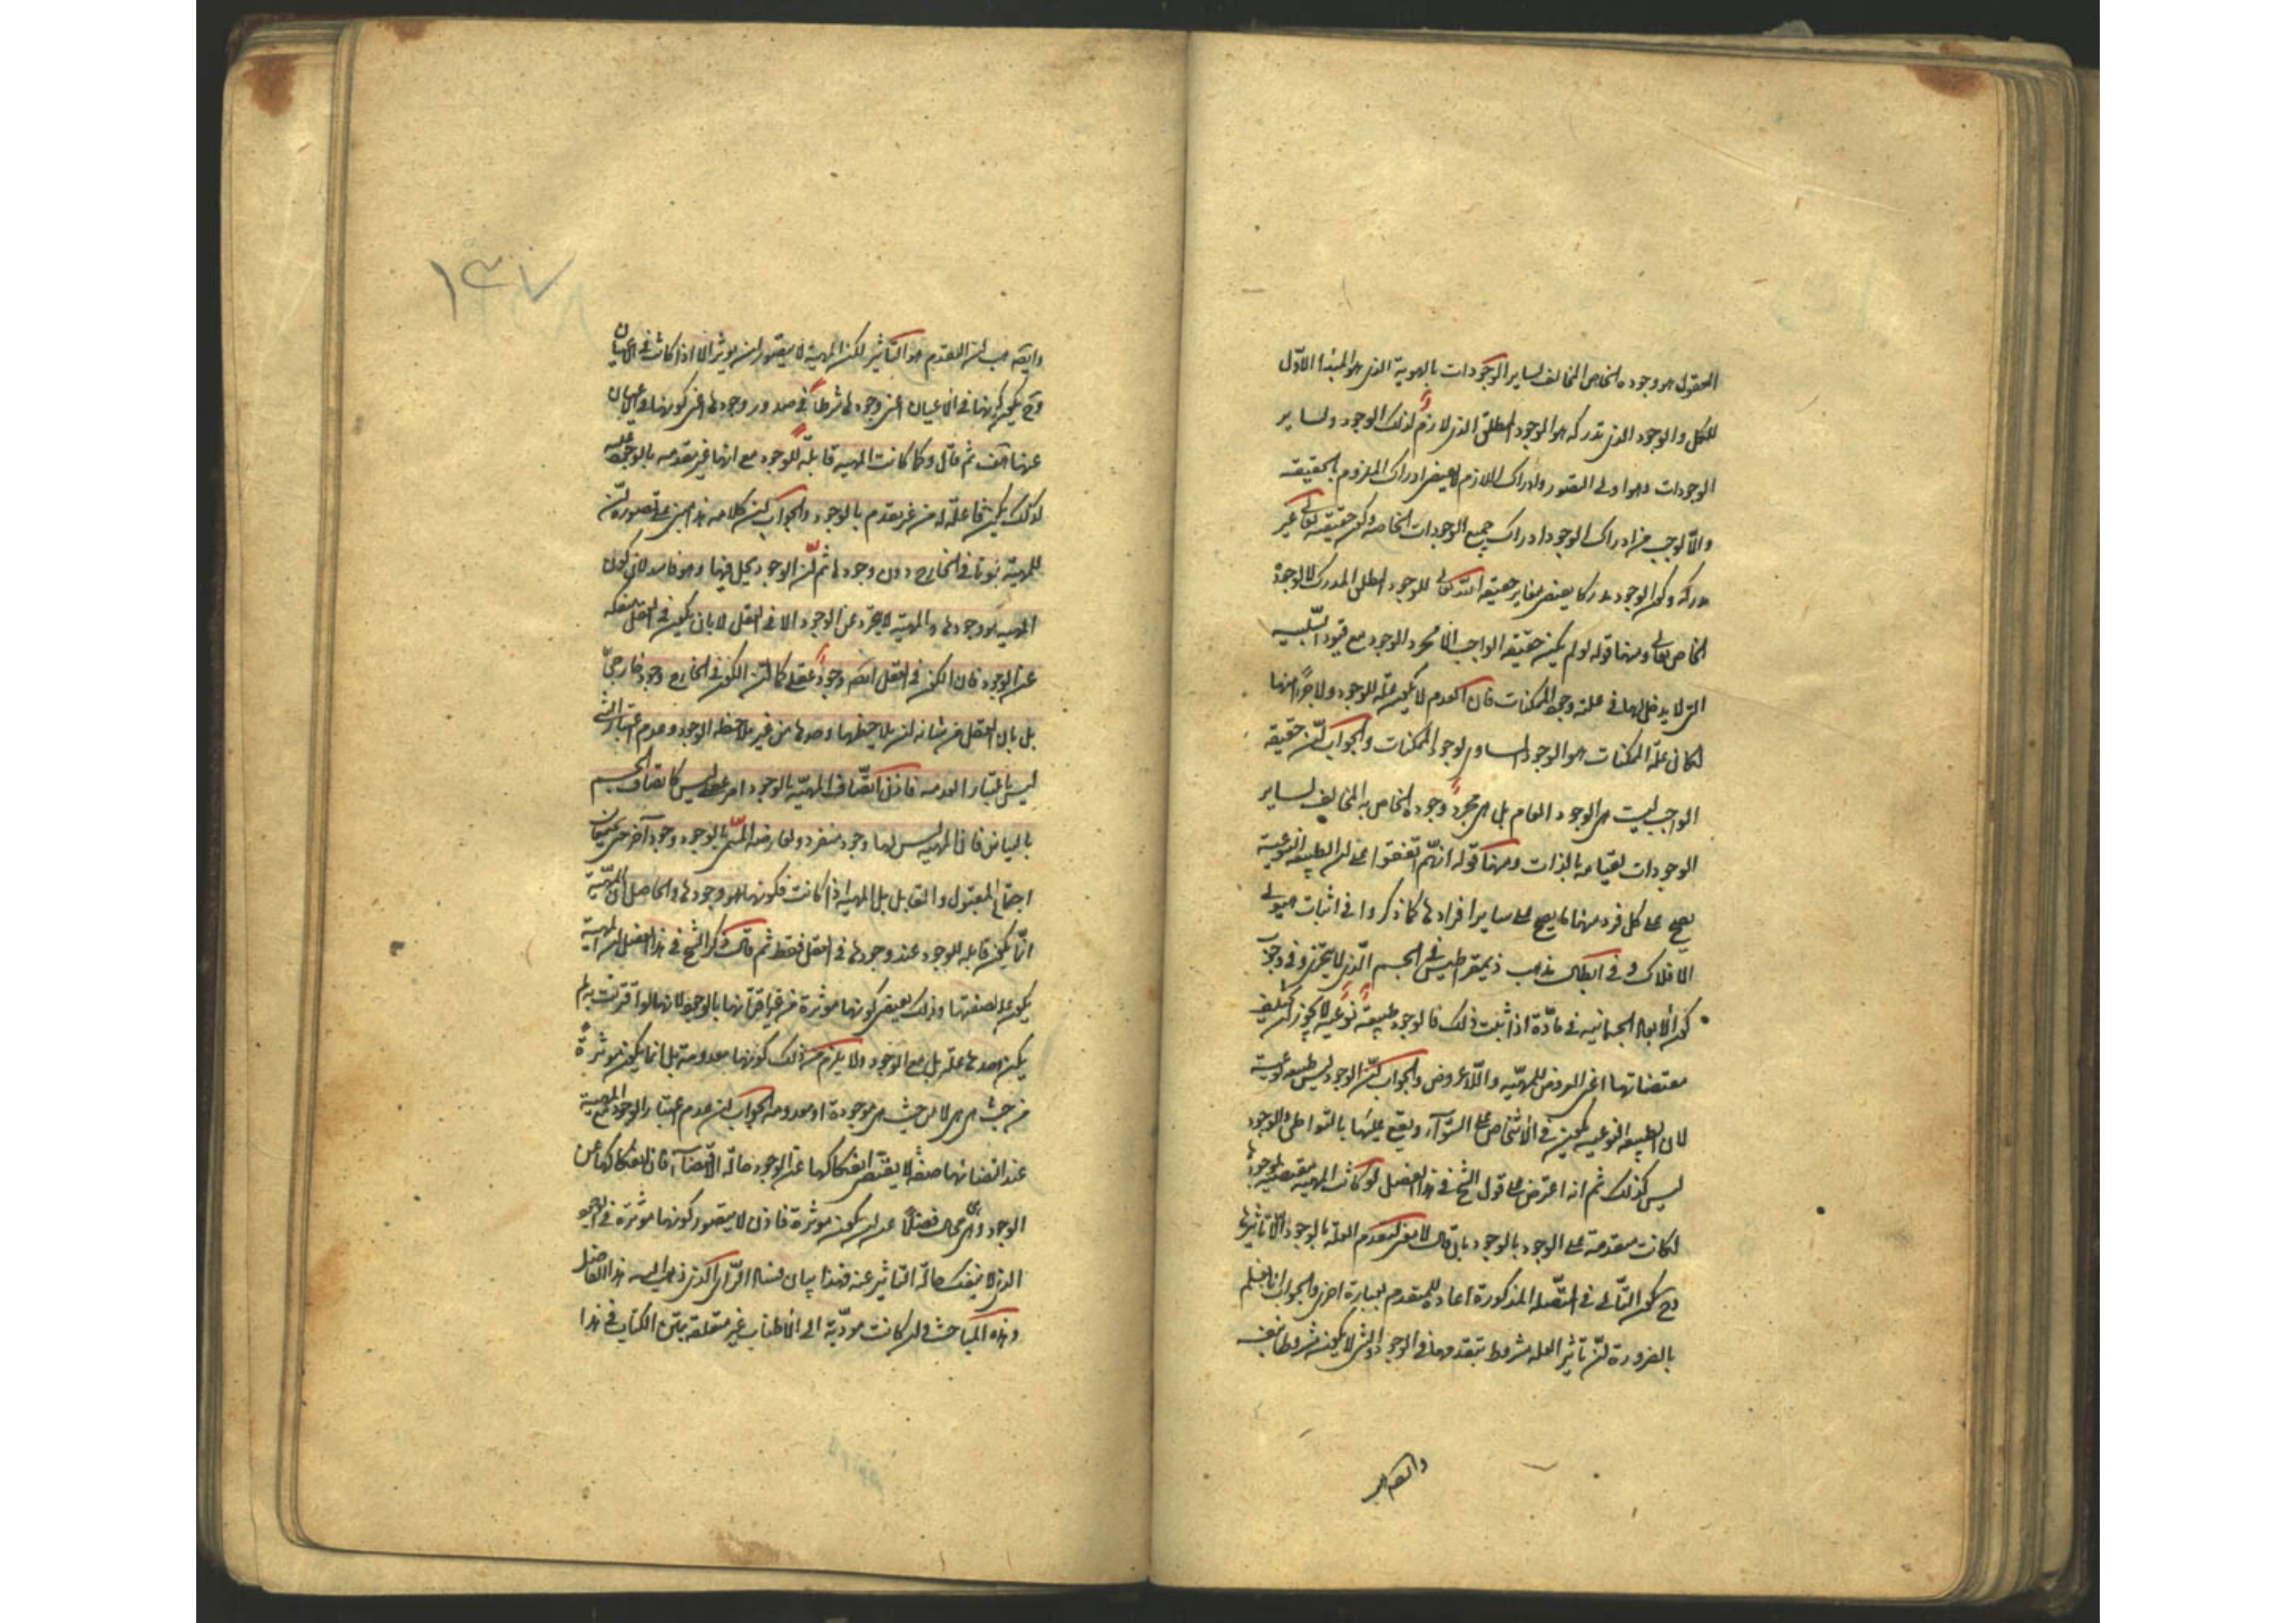 العقول هو وجوده الخاص المخالف لساير الوجودات بالهوية الذى هو المبدأ الاول
للكل والوجود الذى تدركه هو الوجود المطلق الذى لازم لذلك الوجود ولساير
الوجودات وهو اولى التصور وادراك اللازم لا يقتضى ادراك الملزوم بالحقيقة
والّا لوجب من ادراك الوجود ادراك جميع الوجودات الخاصه وكون حقيقته تعالى غير
مدركة وكون الوجود مدركا يقتضى مغايرة حقيقة الله تعالى للوجود المطلق المدرك لا لوجوده
الخاص تعالى ومنها قوله لو لم يكن حقيقة الواجب الّا مجرد الوجود مع قيود السلبيه
التى لا يدخل لها فى علة وجود الممكنات فان العدم لا يكون علّة للوجود ولا جزءا منها
لكان علّة الممكنات هو الوجود المساوى لوجود الممكنات والجواب انّ حقيقة
الواجب ليست هى الوجود العام بل هى مجرد وجوده الخاص به المخالف لساير
الوجودات لقيامه بالذات ومنها قوله انهم اتفقوا على ان الطبيعة النوعية
يصح على كل فرد منها ما يصح على ساير افرادها كما ذكروا فى اثبات هيولى
الافلاك وفى ابطال مذهب ذيمقراطيس فى الجسم الذى لا يتجزى وفى وجوب
كون الابعاد الجسمانيه فى مادّة اذا ثبت ذلك فالوجود طبيعة نوعيه لا يجوز ان تختلف
مقتضاتها اعنى العروض للمهيّه واللّاعروض والجواب انّ الوجود ليس طبيعة نوعية
لان الطبيعة النوعيه يكون فى الاشخاص على السّواء ويقع عليها بالتواطى والوجود
ليس كذلك ثم انه اعترض على قول الشيخ فى هذا الفصل لو كانت المهية مقتضية لوجودها
لكانت متقدمة على الوجود بالوجود بان قال لا معنى لتقدم العلة بالوجود الّا تاثيرها
وح يكون التّالى فى المتّصلة المذكورة اعادة للمقدم بعبارة اخرى والجواب انا نعلم
بالضرورة انّ تاثير العله مشروط بتقدمها فى الوجود والشئ لا يكون مشروطا بنفسه
وايضا هب
١٣٧
وايضا هب ان التقدم هو التاثير لكن المهية لا يتصور ان يوثر الا اذا كانت فى الاعيان
وح يكون كونها فى الاعيان اعنى وجودها شرطا فى صدور وجودها اعنى كونها فى الاعيان
عنها هف ثم قال وكما كانت المهيه قابلة للوجود مع انها غير متقدمه بالوجود عليه
لذلك يكون فاعلة له من غير تقدم بالوجود والجواب ان كلامه هذا مبنى على تصوره انّ
للمهيّة ثبوتا فى الخارج دون وجودها ثم انّ الوجود يحل فيها وهو فاسد لان كون
المهية هو وجودها والمهيّة لا يتجرد عن الوجود الا فى العقل لا بان يكون فى العقل منفكة
عن الوجود فان الكون فى العقل ايضا وجود عقلى كما ان الكون فى الخارج وجود خارجىّ
بل بان العقل من شانه ان يلاحظها وحدها من غير ملاحظة الوجود وعدم اعتبار الشئ
ليس باعتبار العدمه فاذن اتّصاف المهيّة بالوجود امر عقلى ليس كاتصاف الجسم
بالبياض فان المهيه ليس لها وجود منفرد ولعارضها المسمّى بالوجود وجود آخر حتى يجتمعان
اجتماع المقبول والقابل بل المهية اذا كانت فكونها هو وجودها والحاصل انّ المهيّة
انّما يكون قابله للوجود عند وجودها فى العقل فقط ثم قال ذكر الشيخ فى هذا الفصل ان المهية
يكون علة لصفتها وذلك يقتضى كونها موثرة من غير اقترانها بالوجود لانها لو اقترنت به لم
يكن وحدها علة بل مع الوجود ولا يلزم من ذلك كونها معدومة بل انما يكون موثرة
من حيث هى هى لا من حيث هى موجودة او معدومه والجواب ان عدم اعتبار الوجود مع المهية
عند اتصافها بصفة لا يقتضى انفكاكها عن الوجود حالة الاقتضاء فان انفكاكها عن
الوجود وهى هى محال فضلا عن ان يكون موثرة فاذن لا يتصور كونها موثرة فى الوجود
الذى لا ينفك حالة التاثير عنه فهذا بيان فساد الرّاى الذى ذهب اليه هذا الفاضل
وهذه المباحث وان كانت موديّة الى الاطناب غير متعلقة بمتن الكتاب فى هذا